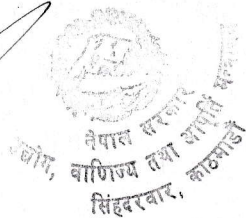 नेपाल सरकार
उद्योग, वाणिज्य तथा आपूर्ति
सिंहदरवार, काठमाडौं